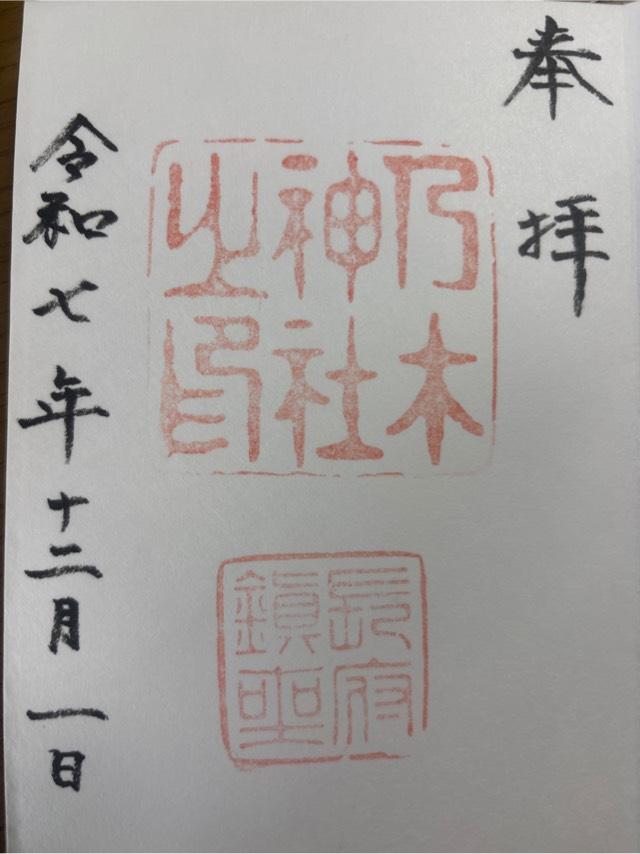 奉拝
乃木
神社
之印
長府
鎮
令和七年十二月一日